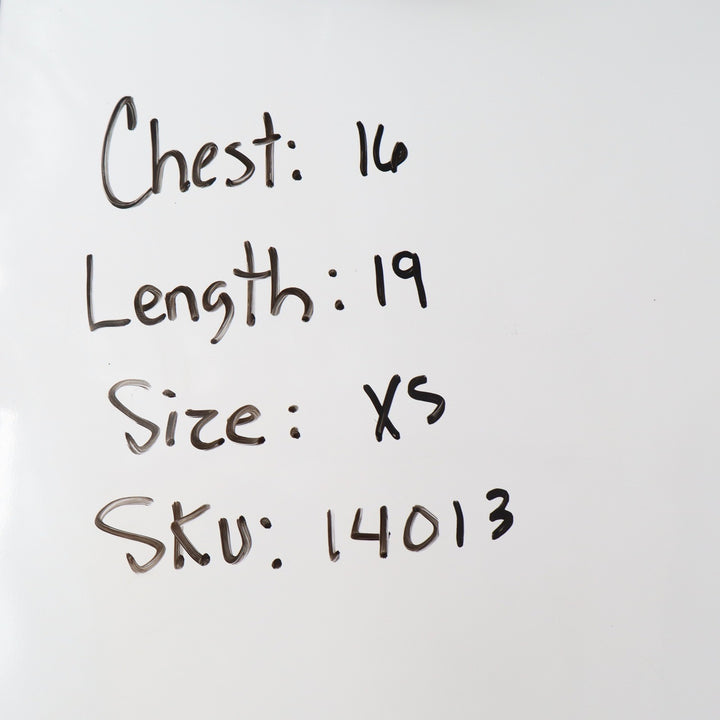 Chest: 16
Length: 19
Size: XS
SKU: 14013